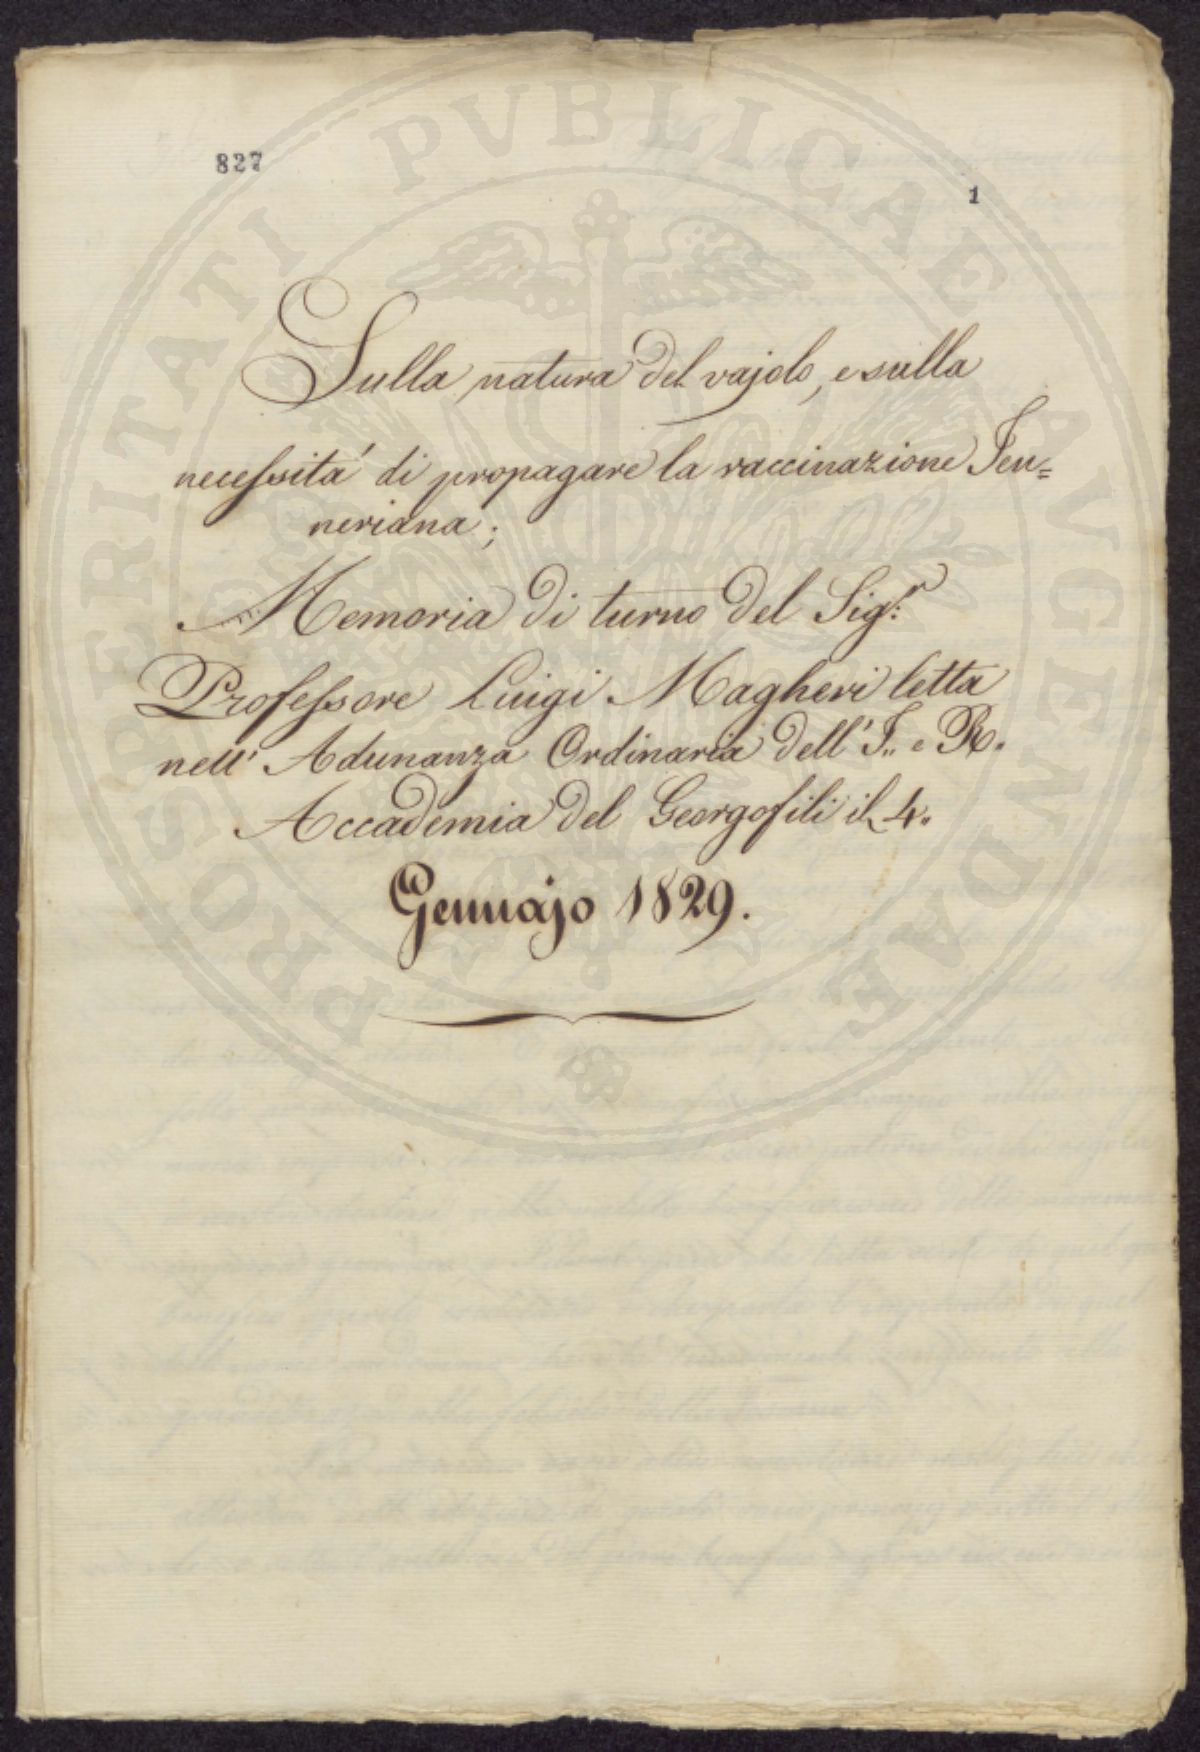 827
1
Sulla natura del vajolo, e sulla
necessità di propagare la vaccinazione Jen=
neriana;
Memoria di turno del Sig.r
Professore Luigi Magheri letta
nell' Adunanza Ordinaria dell' I. e R.
Accademia del Georgofili il 4.
Gennajo 1829.
PROSPERITATI PVBLICAE AVGENDAE